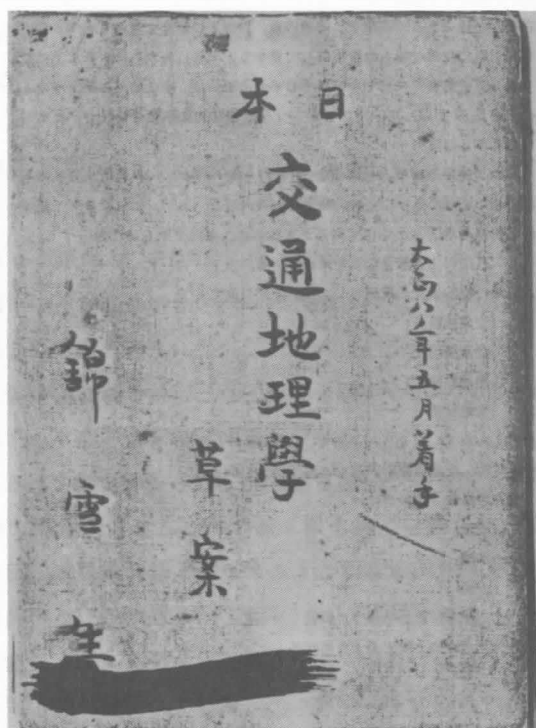 大正八年五月着手
日本
交通地理學
草案
錦雪生